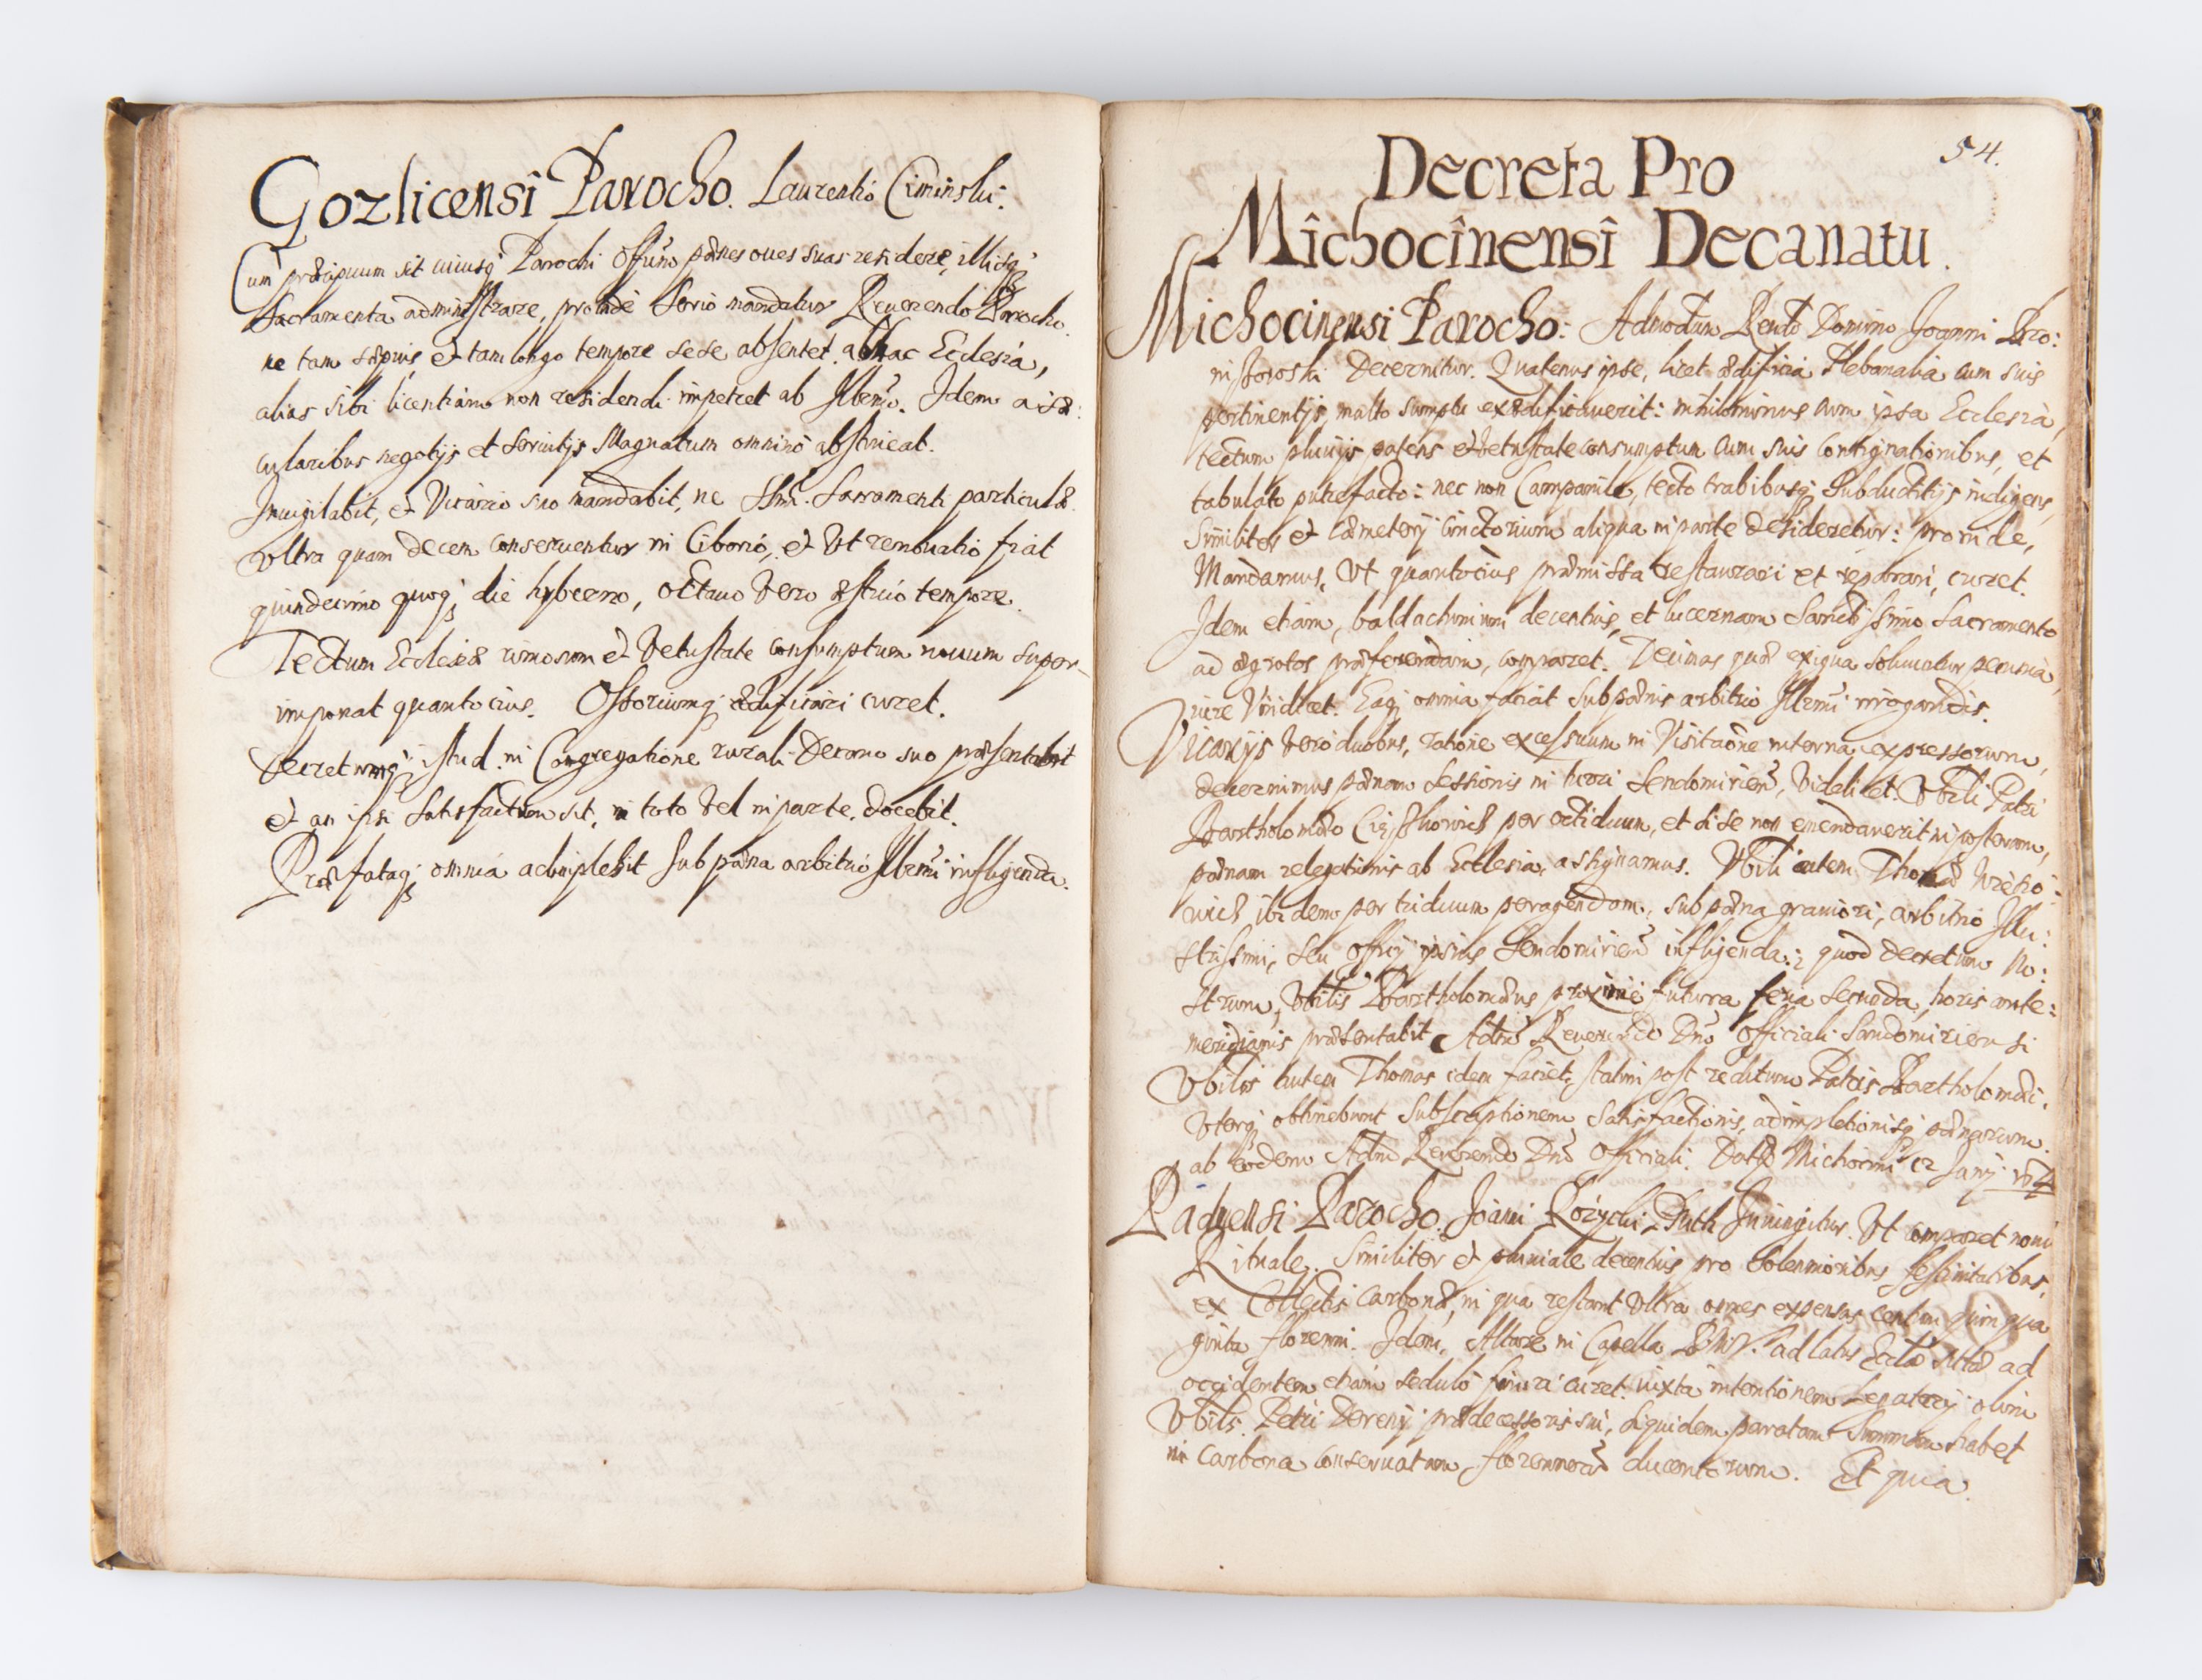 Gozlicensi Parocho. Laurentio Ciminski.
Cum præcipuum sit cuiusq; Parochi offm̃ pænes oues suas residere, illisq;
Sacramenta administrare, proinde serio mandatur Reuerendo Parocho.
ne tam sæpius, et tam longo tempore sese absentet. ab hac Ecclesia,
alias sibi licentiam non residendi impetret ab Illrm̃o. Idem a sæ:
cularibus negotijs et seruitijs Magnatum omnino abstineat.
Inuigilabit, et Vicario suo mandabit, ne SSmi. Sacramenti particulæ
vltra quam decem conseruentur in Ciborio, et vt renouatio fiat
quindecimo quoq; die hyberno, octauo vero æstiuo tempore.
Tectum Ecclesiæ rimosum et vetustate consumptum nouum super-
imponat quantocius. Ossoriumq; ædificari curet.
Decretumq; istud in Congregatione rurali Decano suo præsentabit
et an ipsi satisfactum sit, in toto vel in parte, docebit.
Præfataq; omnia adimplebit sub pæna arbitrio Illrmi infligenda.
54.
Decreta Pro
Michocinensi Decanatu.
Michocinensi Parocho: Admodum Rendo Domino Joanni
Decernitur. Quatenus ipse, licet ædificia Plebanalia cum suis
pertinentijs, multo sumptu exædificauerit: nihilominus cum ipsa Ecclesia,
tectum pluuijs patens et vetustate consumptum cum suis contignationibus, et
tabulato putrefacto: nec non Campanile, tecto trabibusq; subductitijs indigens,
similiter et cæmeterij cinctorium aliqua in parte desideretur: proinde,
Mandamus, vt quantocius præmissa restaurari et reparari, curet.
Idem etiam, baldachinum decentius, et lucernam Sanctissimo Sacramento
ad ægrotos præferendam, comparet. Decimas quæ exigua soluuntur pecunia,
iure vindicet. Eaq; omnia faciat sub pænis arbitrio Illrmi irrogandis.
Vicarijs vero duobus, ratione excessuum in Visitaõne interna expressorum,
decernimus pænam sessionis in turri Sendomirien̄, videlicet. Vbili Patri
Bartholomæo per octiduum, et si se non emendauerit in posterum,
pænam relegationis ab Ecclesia, assignamus. Vbili autem Thomæ
ibidem per triduum peragendam, sub pæna grauiori, arbitrio Illu:
strissimi, seu officij ipsius Sendomirien̄ infligenda: quod decretum No:
strum, Vbilis Bartholomæus proxime futura feria secunda, horis ante:
meridianis præsentabit Admo Reuerendo Dno Officiali Sandomiriensi
Vbilis autem Thomas idem faciet, statim post reditum Patris Bartholomæi.
Vterq; obtinebunt subscriptionem satisfactionis, adimpletionisq; pænarum.
ab eodem Admo Reuerendo Dno Officiali. Datt Michocini 12
Paduensi Parocho. Joanni Rozycki Iniungitur. Vt comparet noui
Rituale. Similiter et pluuiale decentius pro solennioribus festiuitatibus,
ex Collectis carbonæ, in qua restant vltra omnes expensas centum quinqua
ginta florenni. Idem, Altare in Capella BMV. ad latus Ecclæ sitæ ad
occidentem etiam sedulo curet. iuxta intentionem Legatarij olim
Vbilis. Petri Derenij prædecessoris sui, siquidem paratam summam habet
in carbona conseruatam florennorũ ducentorum. Et quia.